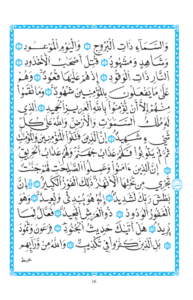 وَالسَّمَآءِ ذَاتِ الْبُرُوْجِ ۝ وَالْيَوْمِ الْمَوْعُوْدِ ۝
وَشَاهِدٍ وَّمَشْهُوْدٍ ۝ قُتِلَ اَصْحٰبُ الْاُخْدُوْدِ ۝
النَّارِ ذَاتِ الْوَقُوْدِ ۝ اِذْ هُمْ عَلَيْهَا قُعُوْدٌ ۝ وَّهُمْ
عَلٰى مَا يَفْعَلُوْنَ بِالْمُؤْمِنِيْنَ شُهُوْدٌ ۝ وَمَا نَقَمُوْا
مِنْهُمْ اِلَّآ اَنْ يُّؤْمِنُوْا بِاللّٰهِ الْعَزِيْزِ الْحَمِيْدِ ۝ الَّذِيْ
لَهٗ مُلْكُ السَّمٰوٰتِ وَالْاَرْضِ وَاللّٰهُ عَلٰى كُلِّ
شَيْءٍ شَهِيْدٌ ۝ اِنَّ الَّذِيْنَ فَتَنُوا الْمُؤْمِنِيْنَ وَالْمُؤْمِنٰتِ
ثُمَّ لَمْ يَتُوْبُوْا فَلَهُمْ عَذَابُ جَهَنَّمَ وَلَهُمْ عَذَابُ الْحَرِيْقِ
۝ اِنَّ الَّذِيْنَ اٰمَنُوْا وَعَمِلُوا الصّٰلِحٰتِ لَهُمْ جَنّٰتٌ
تَجْرِيْ مِنْ تَحْتِهَا الْاَنْهٰرُ ذٰلِكَ الْفَوْزُ الْكَبِيْرُ ۝ اِنَّ
بَطْشَ رَبِّكَ لَشَدِيْدٌ ۝ اِنَّهٗ هُوَ يُبْدِئُ وَيُعِيْدُ ۝ وَهُوَ
الْغَفُوْرُ الْوَدُوْدُ ۝ ذُو الْعَرْشِ الْمَجِيْدُ ۝ فَعَّالٌ لِّمَا
يُرِيْدُ ۝ هَلْ اَتٰىكَ حَدِيْثُ الْجُنُوْدِ ۝ فِرْعَوْنَ وَثَمُوْدَ
۝ بَلِ الَّذِيْنَ كَفَرُوْا فِيْ تَكْذِيْبٍ ۝ وَّاللّٰهُ مِنْ وَّرَآئِهِمْ
محيط
16